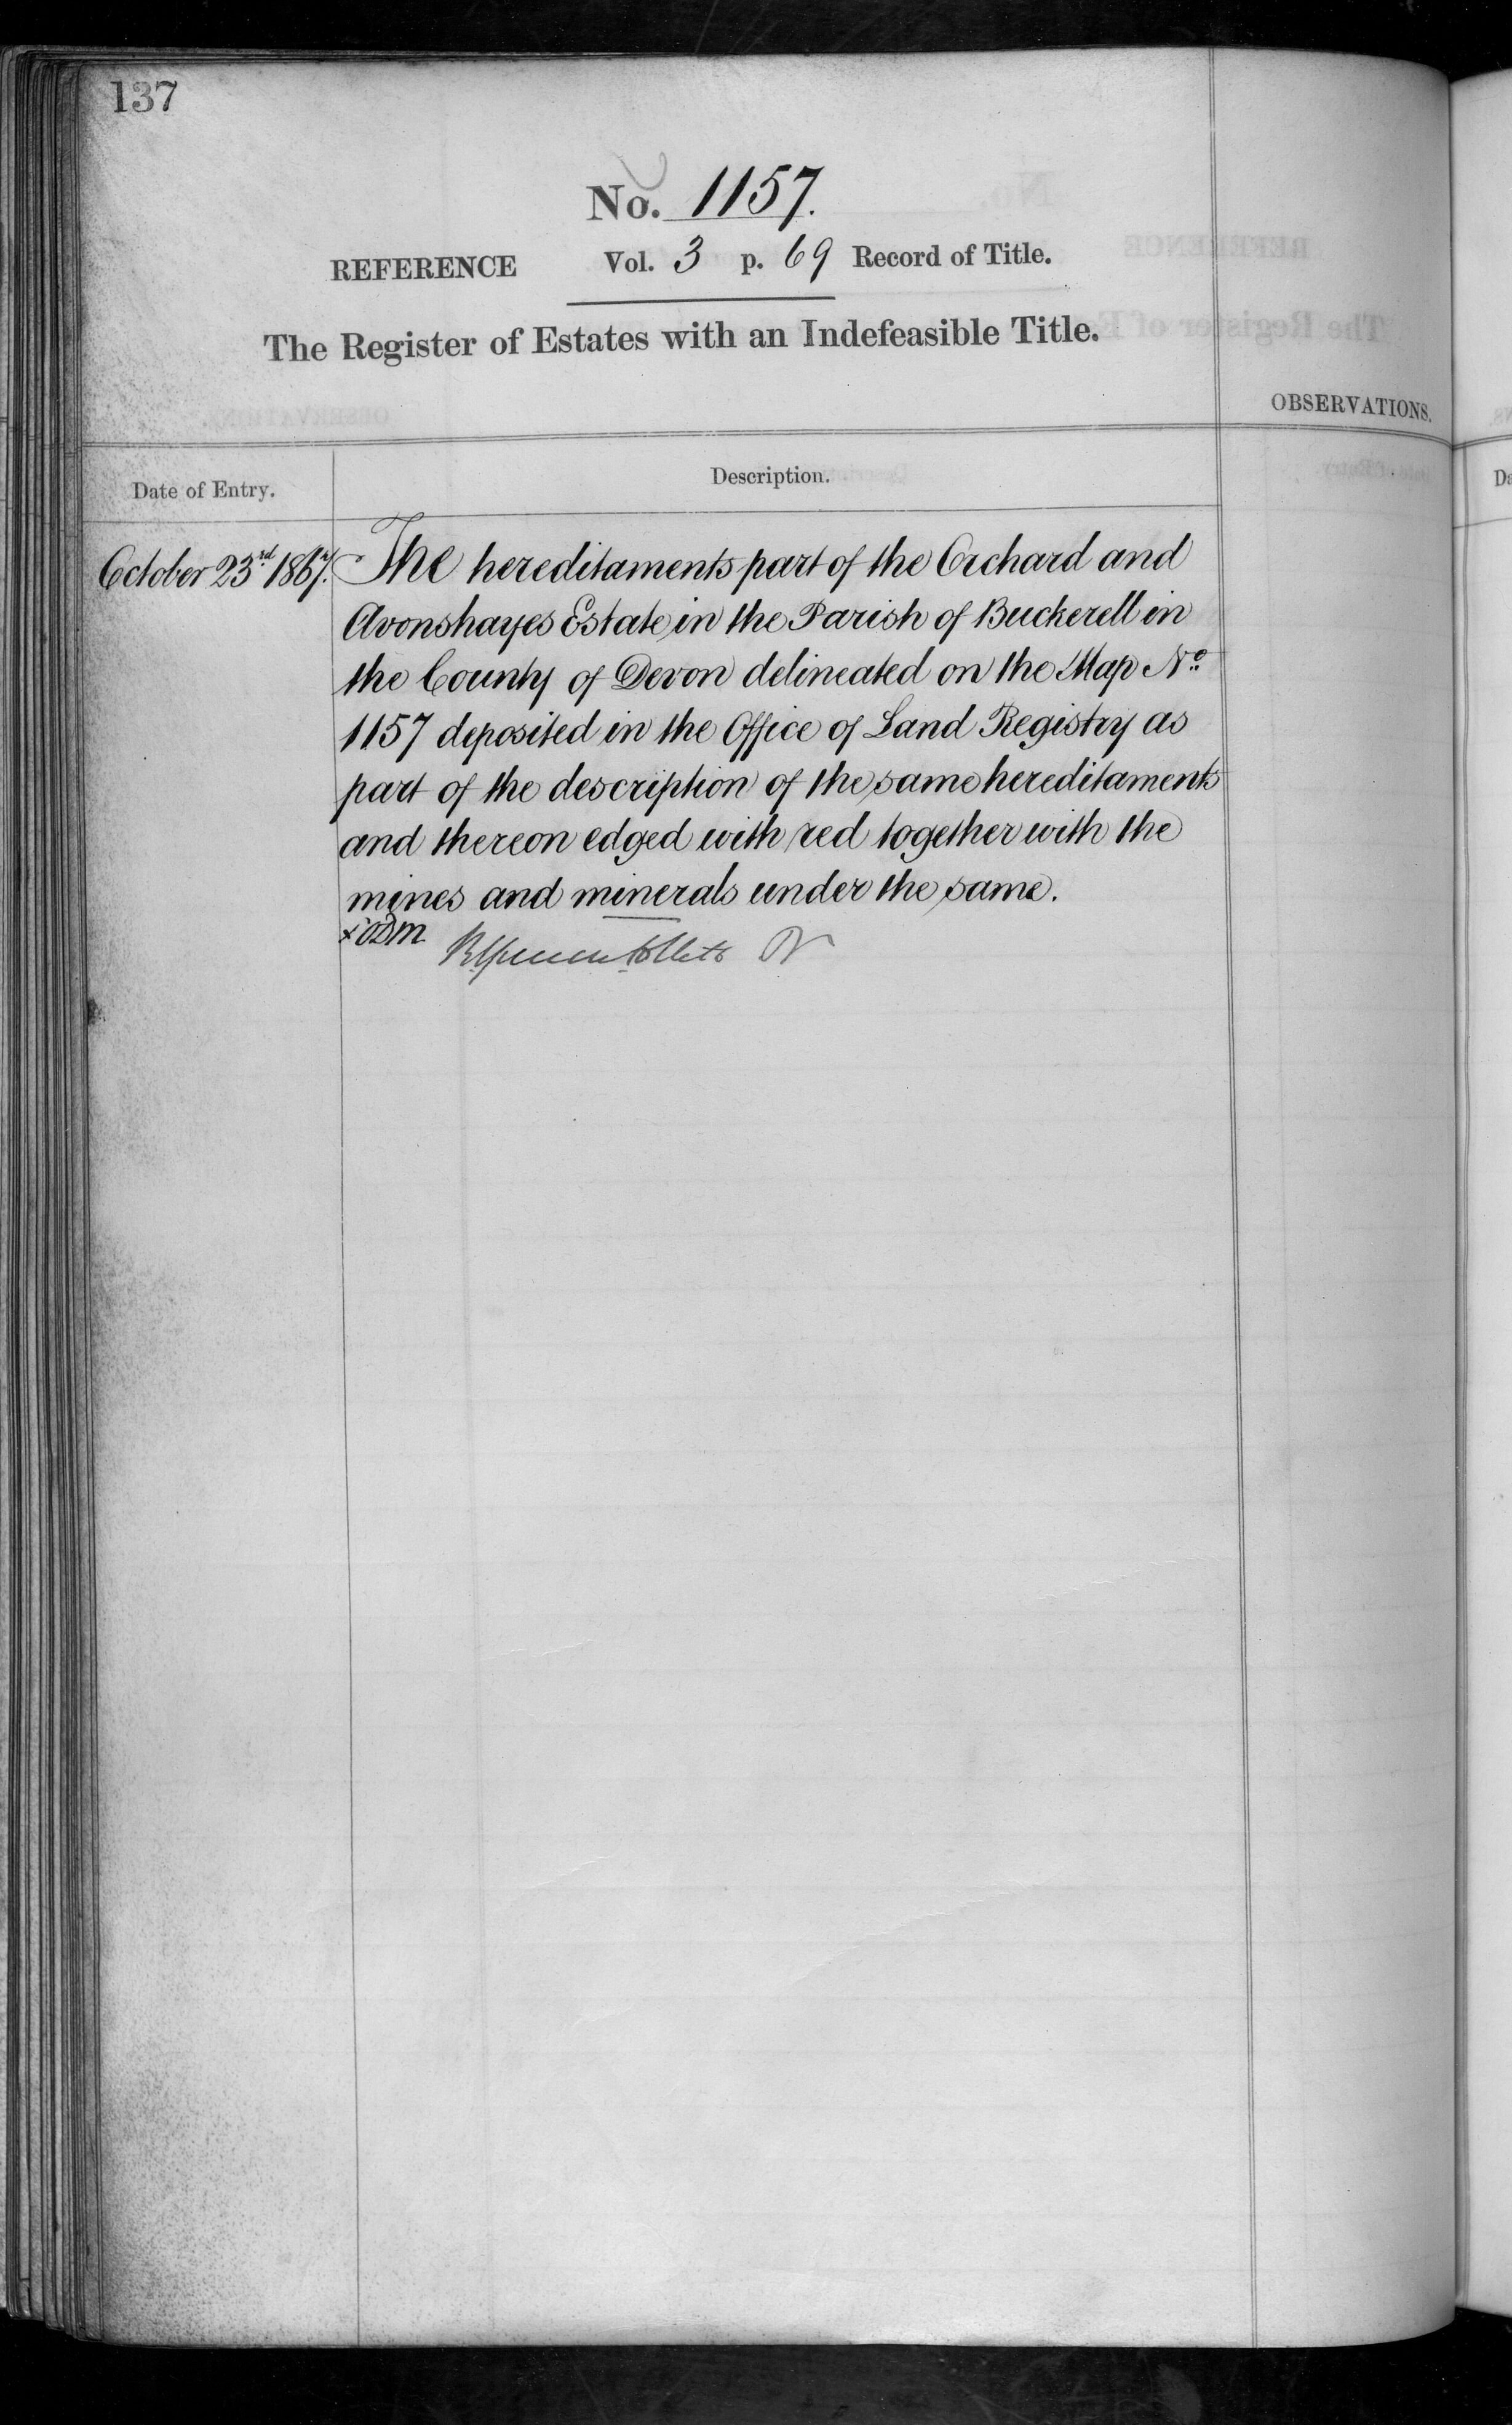 137
No. 1157.
REFERENCE Vol. 3 p. 69 Record of Title.
The Register of Estates with an Indefeasible Title.
OBSERVATIONS.
Date of Entry.
Description.
October 23rd 1867. The hereditaments part of the Orchard and
Avonshayes Estate in the Parish of Buckerell in
the County of Devon delineated on the Map No.
1157 deposited in the Office of Land Registry as
part of the description of the same hereditaments
and thereon edged with red together with the
mines and minerals under the same.